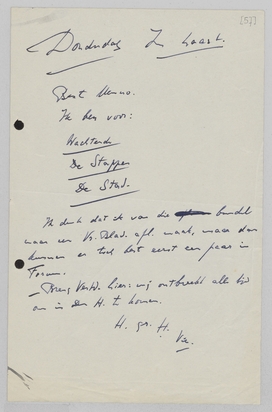 [5]
Donderdag In haast.
Best Menno.
Ik ben voor:
Wachtend
De Stappen
De Stad.
Ik denk dat ik van die bundel
maar een Vr. Blad. afl. maak, maar dan
kunnen er toch best eerst een paar in
Forum.
Breng hier: mij ontbreekt alle tijd
om in Den H. te komen.
H. gr. H.